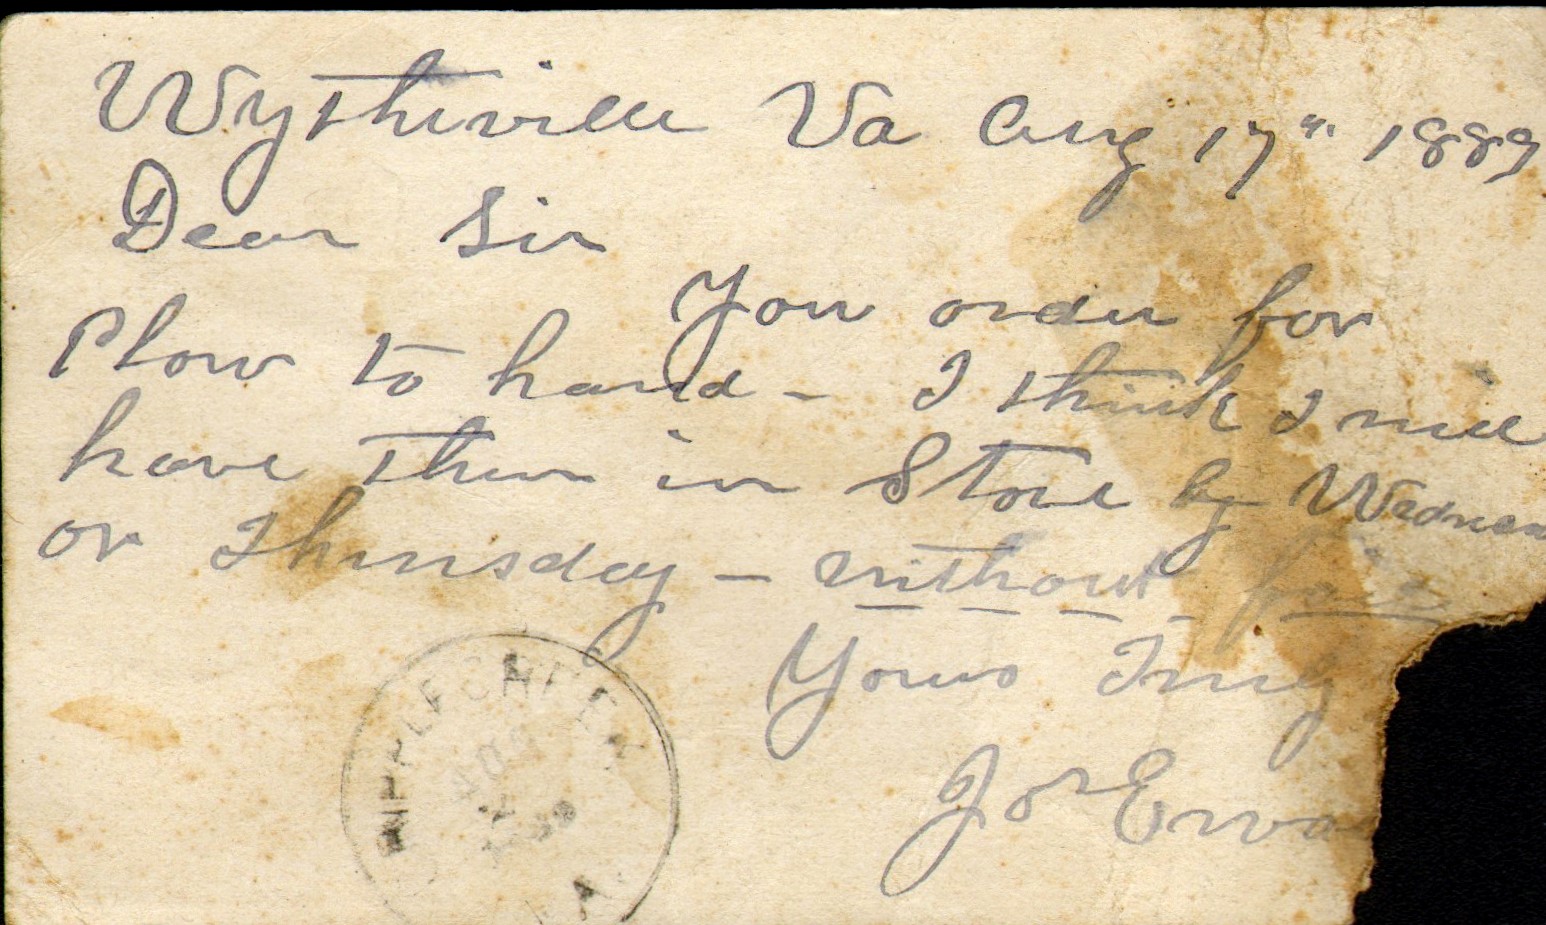 Wytheville Va Aug 17" 1889
Dear Sir
Your order for
Plow to hand - I think I will
have them in Store by Wednes
or Thursday - without
Yours Truly
Jos Erva
CRIPPLE CREEK
AUG
VA.